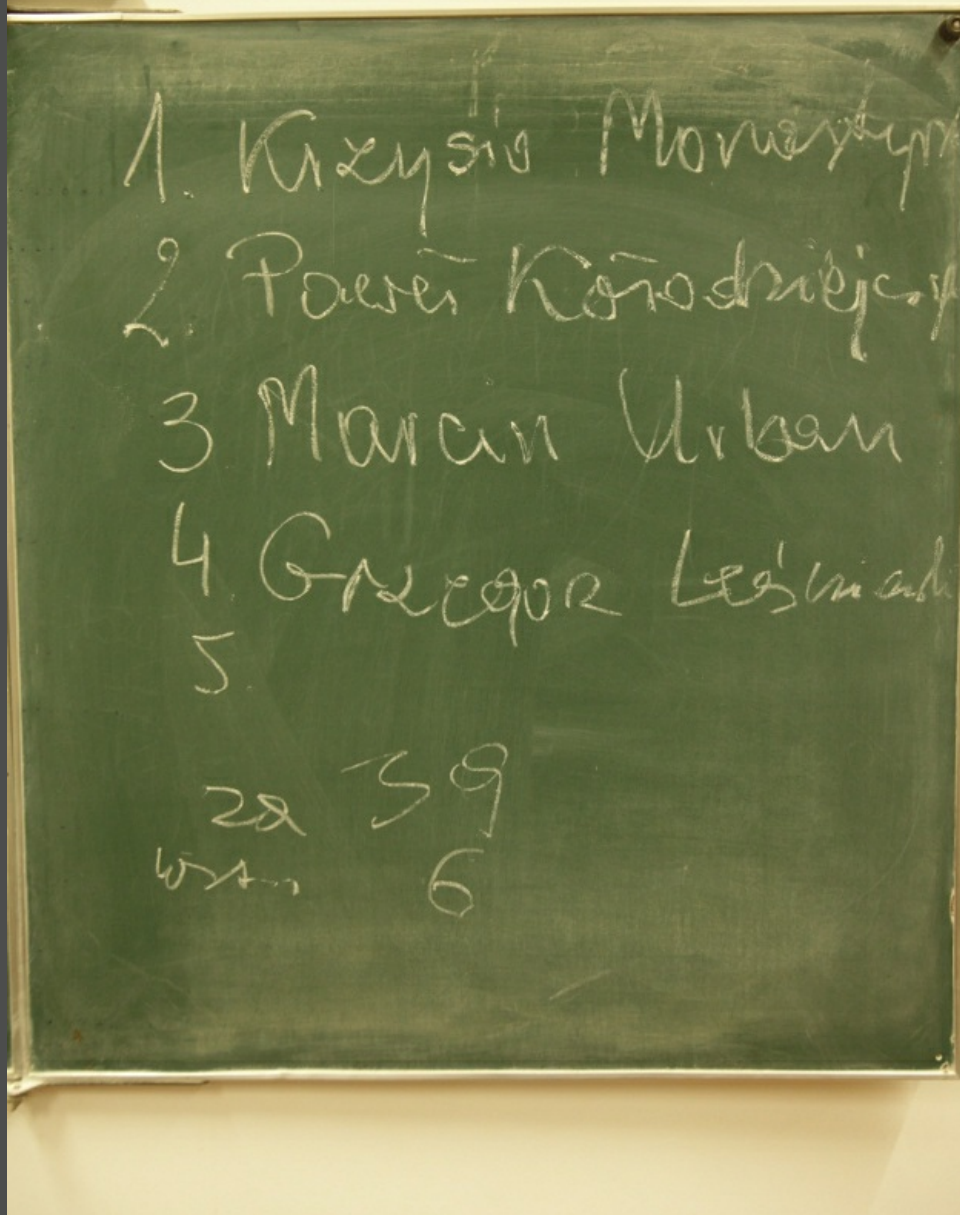 1. Krzysio Monastyr
2. Paweł Kołodziejczy
3 Marcin Urban
4 Grzegorz Leśniak
5.
za 39
wst. 6